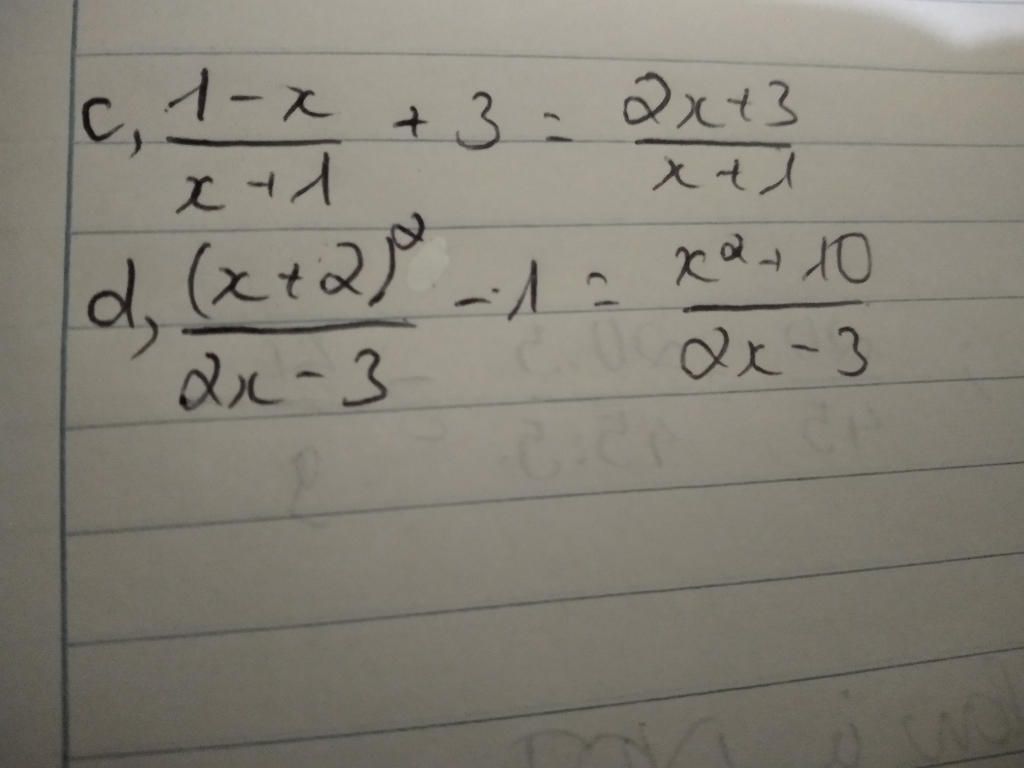 c, \frac{1-x}{x+1} + 3 = \frac{2x+3}{x+1}
d, \frac{(x+2)^2}{2x-3} - 1 = \frac{x^2+10}{2x-3}